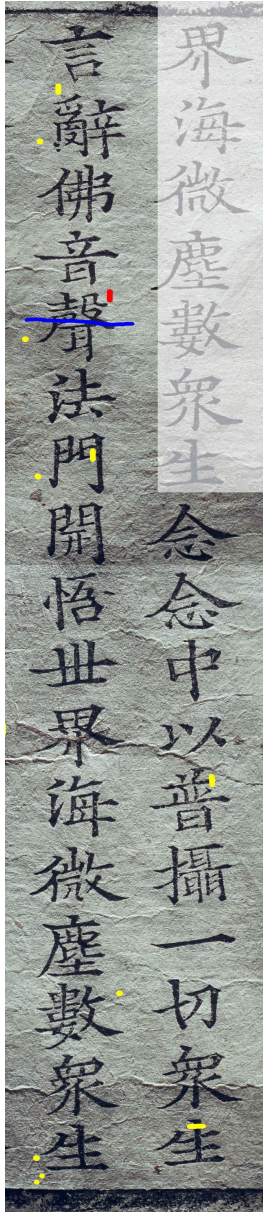 界海微塵數衆生念念中以普攝一切衆生
言辭佛音聲法門開悟世界海微塵數衆生